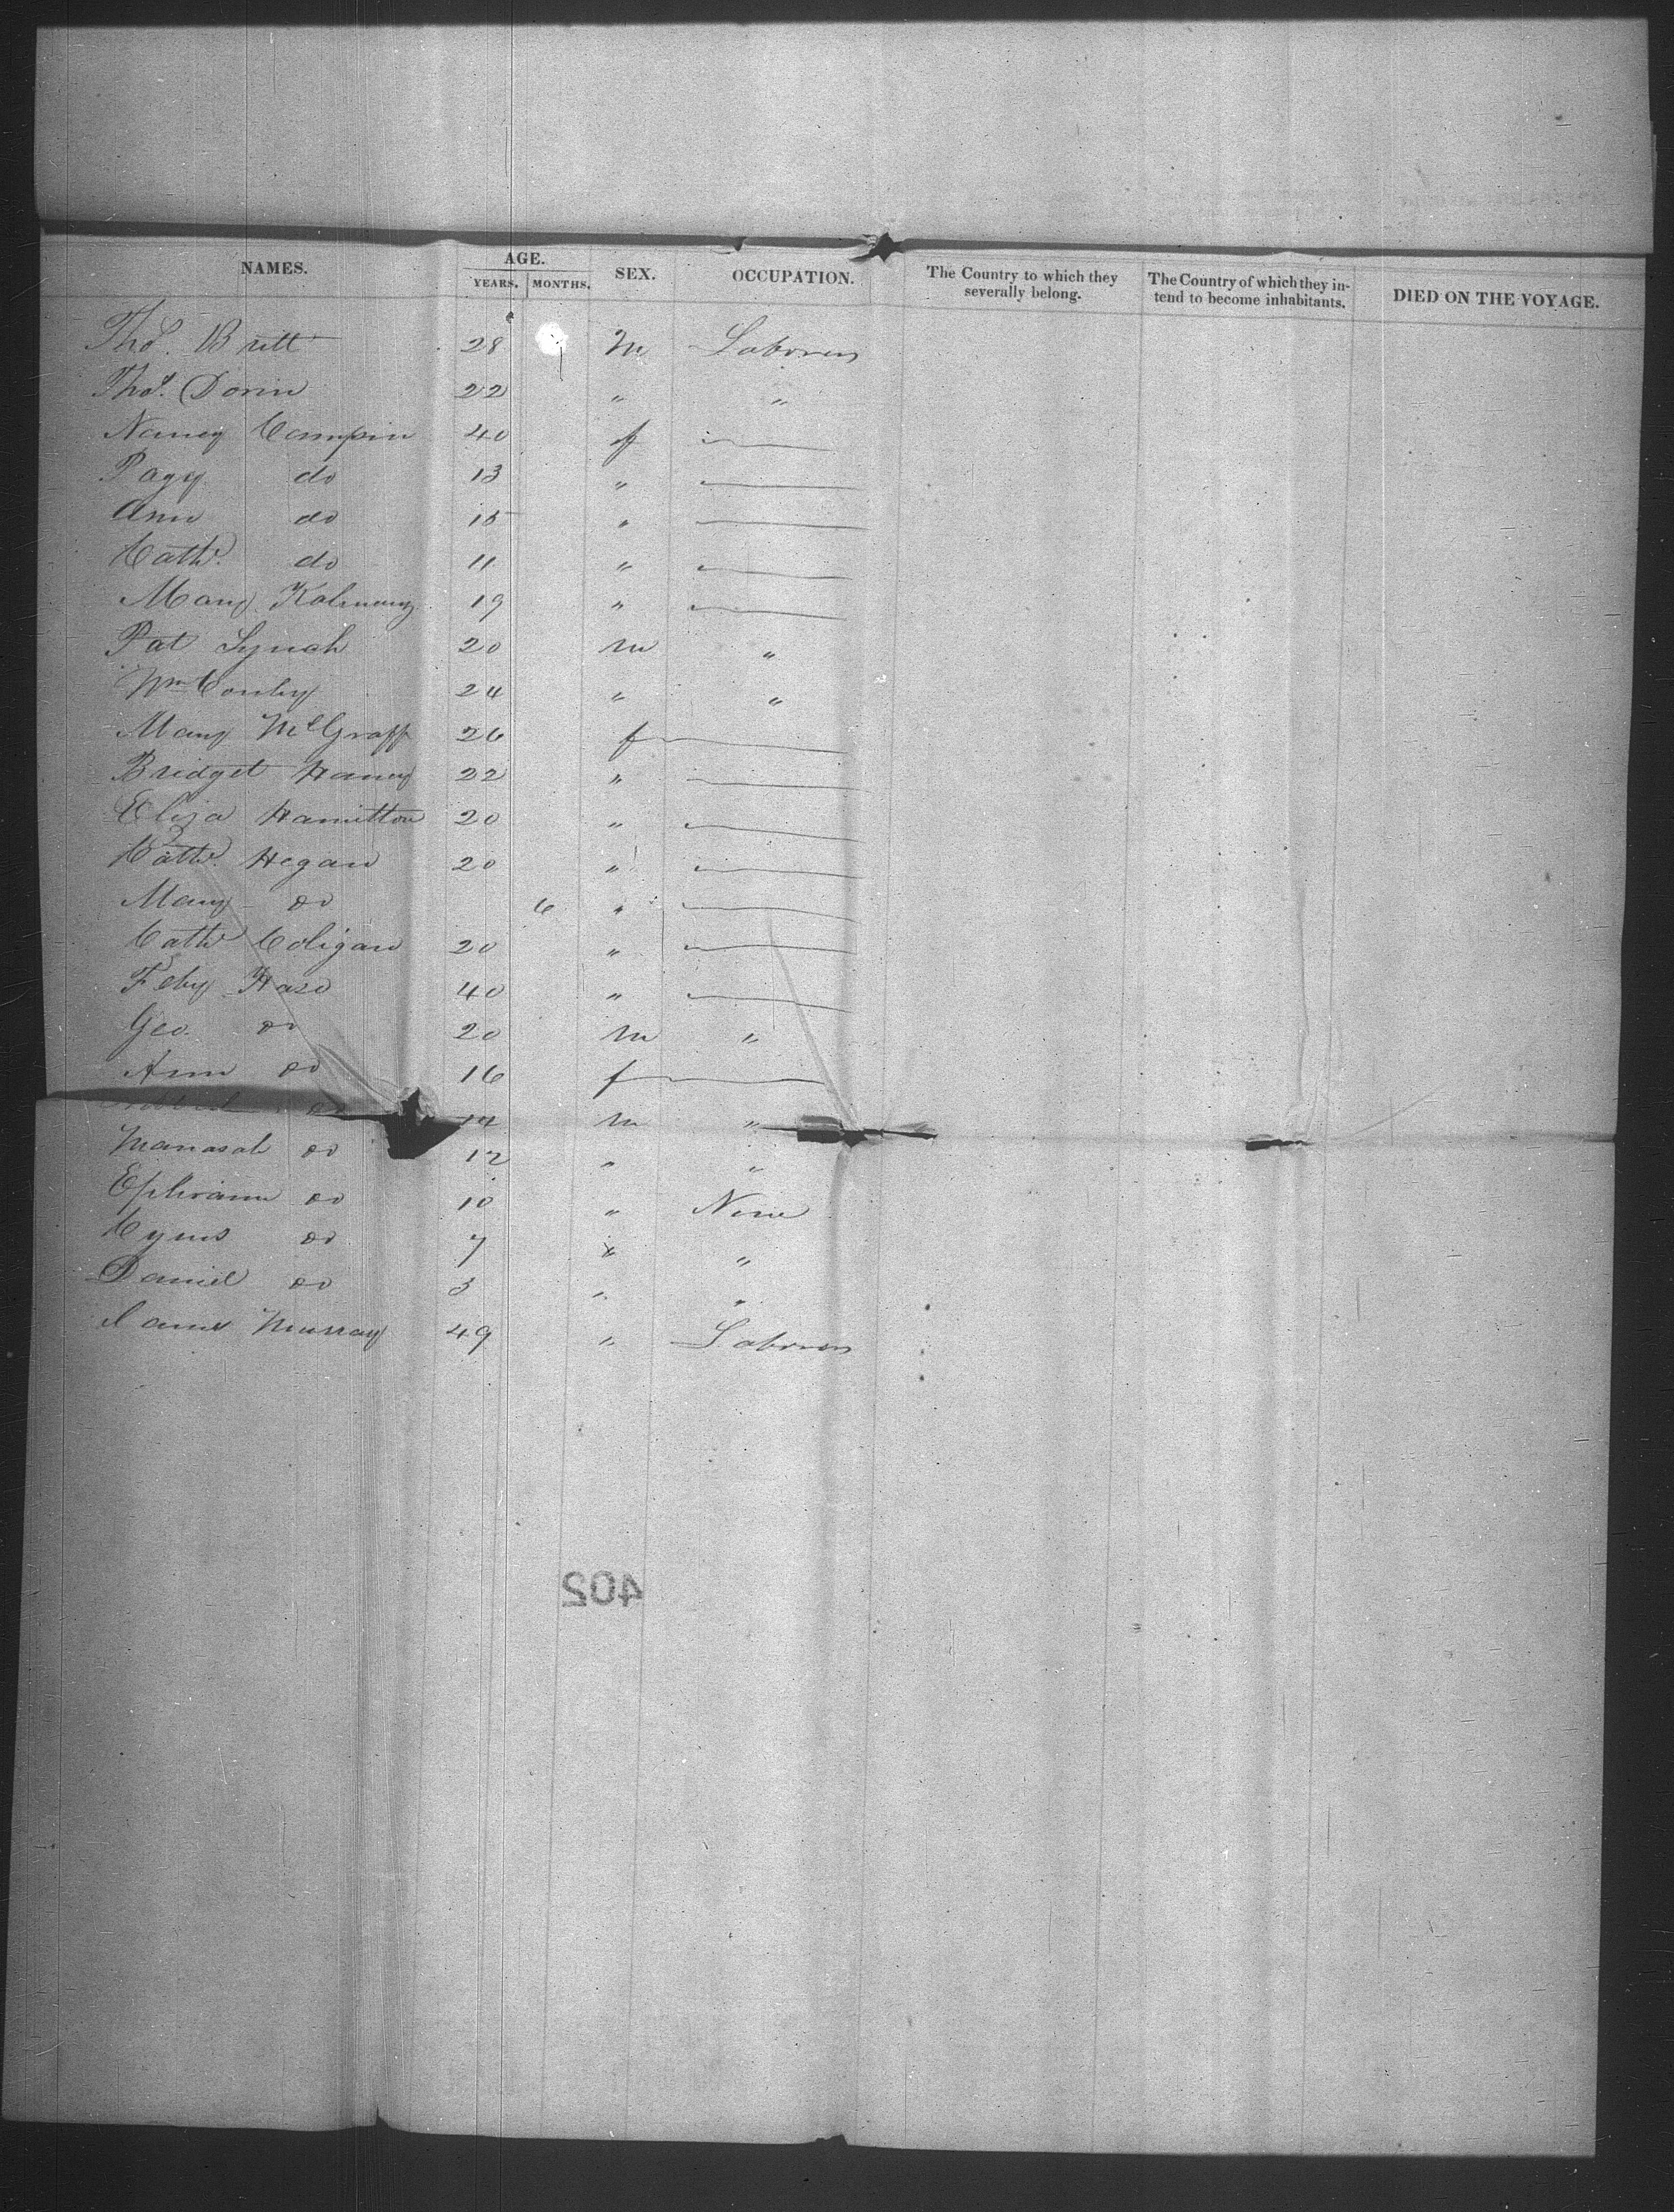 NAMES. AGE. SEX. OCCUPATION. The Country to which they severally belong. The Country of which they in-tend to become inhabitants. DIED ON THE VOYAGE.
YEARS. MONTHS.
Thos. Britt 28 M Laborers
Thos. Dorin 22 " "
Nancy Campin 40 f
Pagy do 13 "
Ann do 15 "
Cath. do 11 "
Mary 19 "
Pat Lynch 20 M "
Wm Conley 24 " "
Mary McGraff 26 f
Bridget Haney 22 "
Eliza Hamilton 20 "
Cath. Hegan 20 "
Mary do 6 "
Cath Coligan 20 "
Feby 40 "
Geo. do 20 M "
Ann do 16 f
do 14 M "
Manasah do 12 " "
Ephraim do 10 " None
Cyrus do 7 " "
Daniel do 3 " "
James Murray 49 " Laborers
402